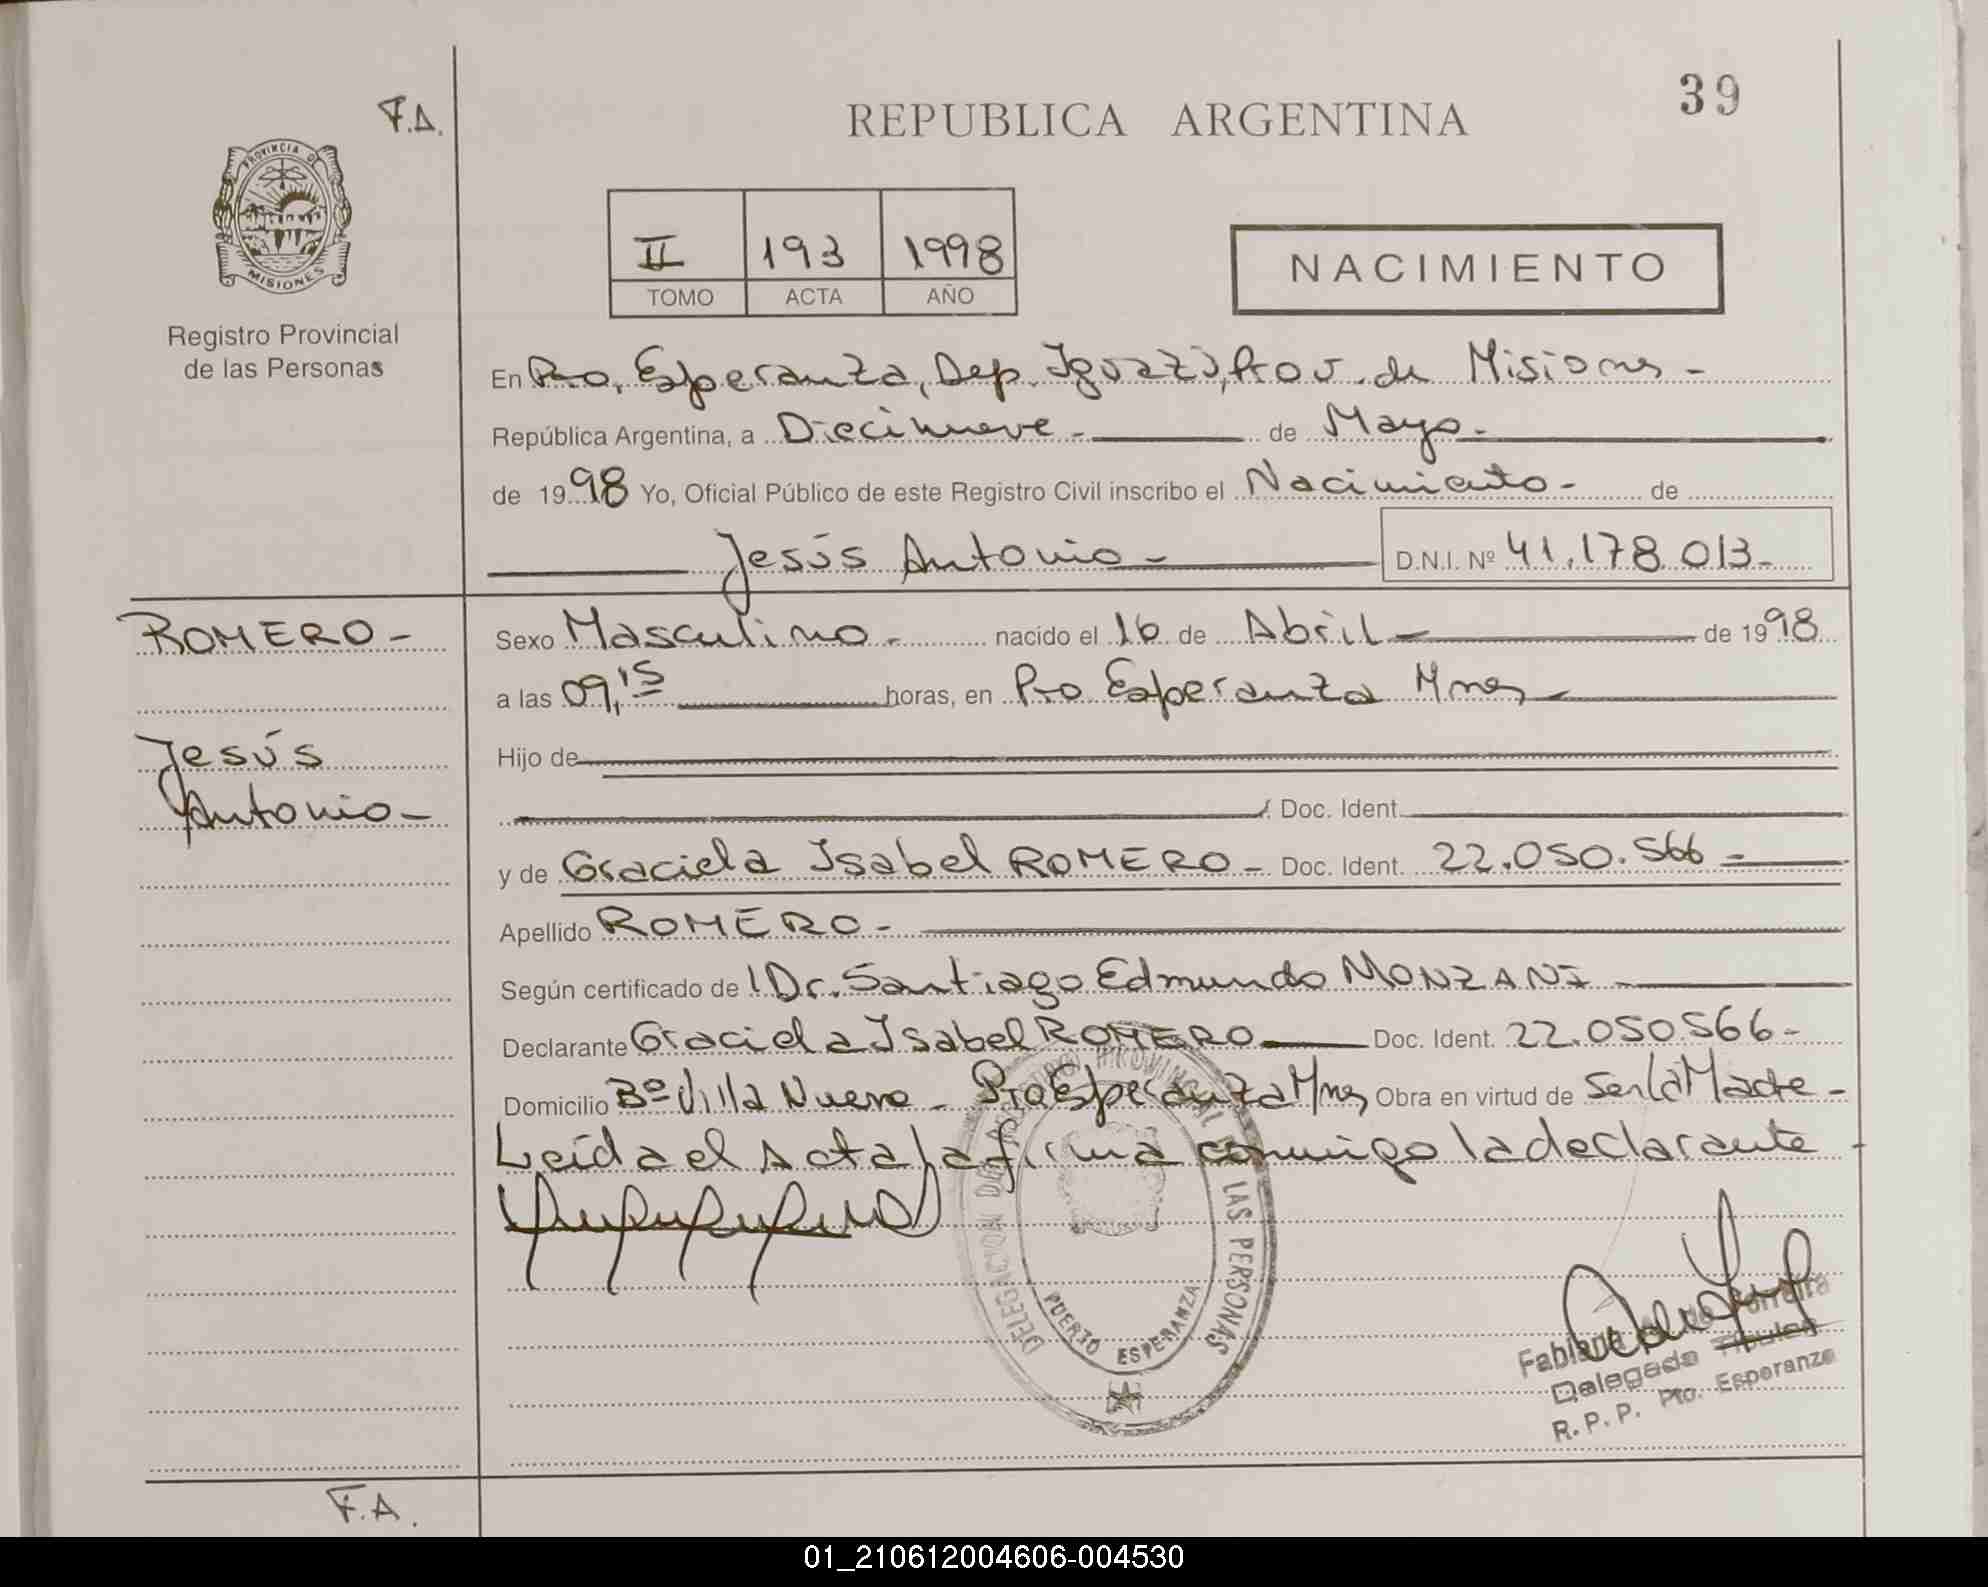 F.A.
REPUBLICA ARGENTINA
39
PROVINCIA DE
MISIONES
Registro Provincial
de las Personas
II 193 1998
TOMO ACTA AÑO
NACIMIENTO
En Pto. Esperanza, Dep. Iguazú, Prov. de Misiones -
República Argentina, a Diecinueve - de Mayo -
de 1998 Yo, Oficial Público de este Registro Civil inscribo el Nacimiento - de
Jesús Antonio - D.N.I. Nº 41.178.013-
ROMERO -
Jesús
Antonio -
Sexo Masculino - nacido el 16 de Abril - de 1998
a las 09,15 horas, en Pto Esperanza Mnes -
Hijo de
Doc. Ident.
y de Graciela Isabel ROMERO - Doc. Ident. 22.050.566 -
Apellido ROMERO -
Según certificado de l Dr. Santiago Edmundo MONZANI -
Declarante Graciela Isabel ROMERO Doc. Ident. 22.050.566 -
Domicilio Bº Villa Nueva - Pto Esperanza Mnes Obra en virtud de Ser la Madre -
Leída el Acta la firma conmigo la declarante -
DELEGACION DEL REGISTRO PROVINCIAL DE LAS PERSONAS
PUERTO ESPERANZA
Delegado Titular
R.P.P. Pto. Esperanza
F.A.
01_210612004606-004530